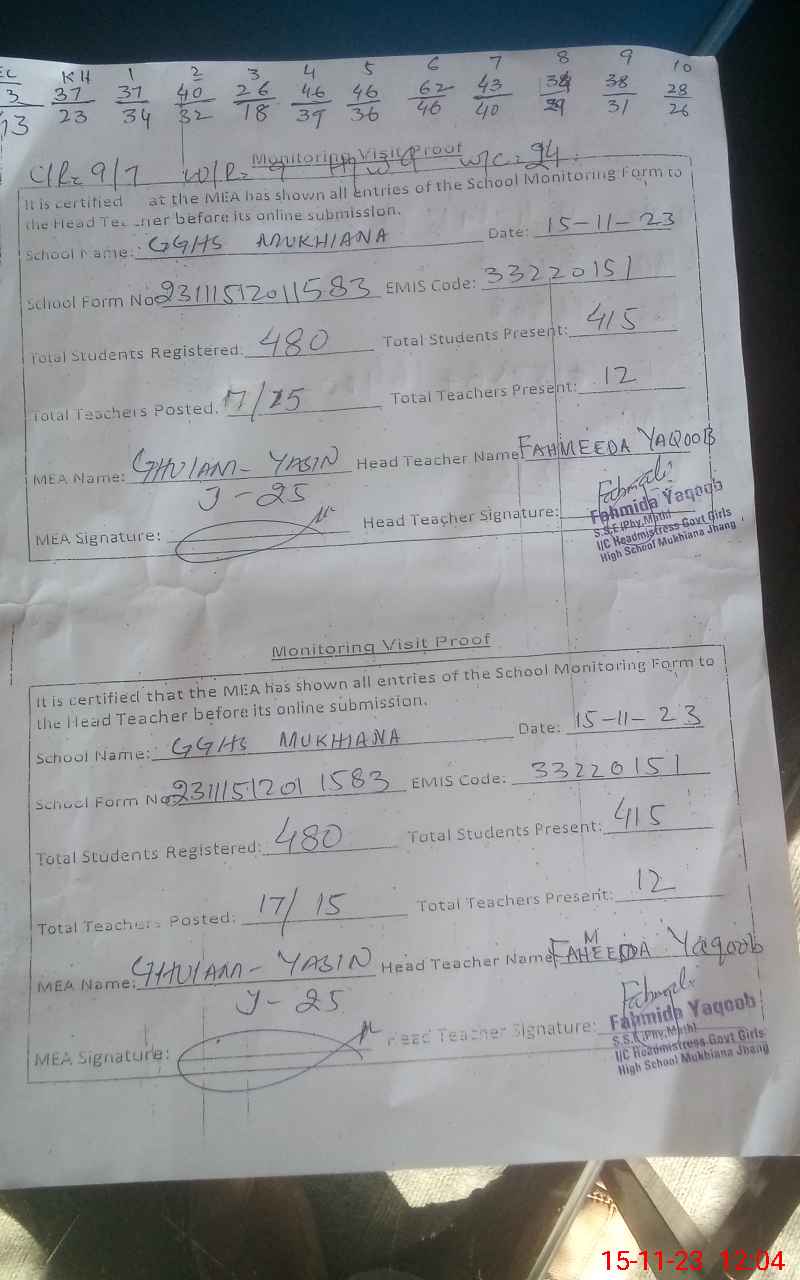 KH 1 2 3 4 5 6 7 8 9 10
3 37 37 40 26 46 46 62 43 38 38 28
13 23 34 32 18 39 36 46 40 29 31 26
Monitoring Visit Proof
C/R= 9/7 W/R= 9 W/C= 94
It is certified at the MEA has shown all entries of the School Monitoring Form to
the Head Teacher before its online submission.
School Name: GGHS MUKHIANA Date: 15-11-23
School Form No 23111512011583 EMIS Code: 33220151
Total Students Registered: 480 Total Students Present: 415
Total Teachers Posted. 17/15 Total Teachers Present: 12
MEA Name: GHULAM- YASIN Head Teacher Name FAHMEEDA YAQOOB
J-25
MEA Signature: Head Teacher Signature:
Fahmida Yaqoob
S.S.E (Phy,Math)
I/C Headmistress Govt Girls
High School Mukhiana Jhang
Monitoring Visit Proof
It is certified that the MEA has shown all entries of the School Monitoring Form to
the Head Teacher before its online submission.
School Name: GGHS MUKHIANA Date: 15-11-23
School Form No 23111512011583 EMIS Code: 33220151
Total Students Registered: 480 Total Students Present: 415
Total Teachers Posted: 17/15 Total Teachers Present: 12
MEA Name: GHULAM- YASIN Head Teacher Name FAHMEEDA Yaqoob
J-25
MEA Signature: Head Teacher Signature:
Fahmida Yaqoob
S.S.E (Phy,Math)
I/C Headmistress Govt Girls
High School Mukhiana Jhang
15-11-23 12:04